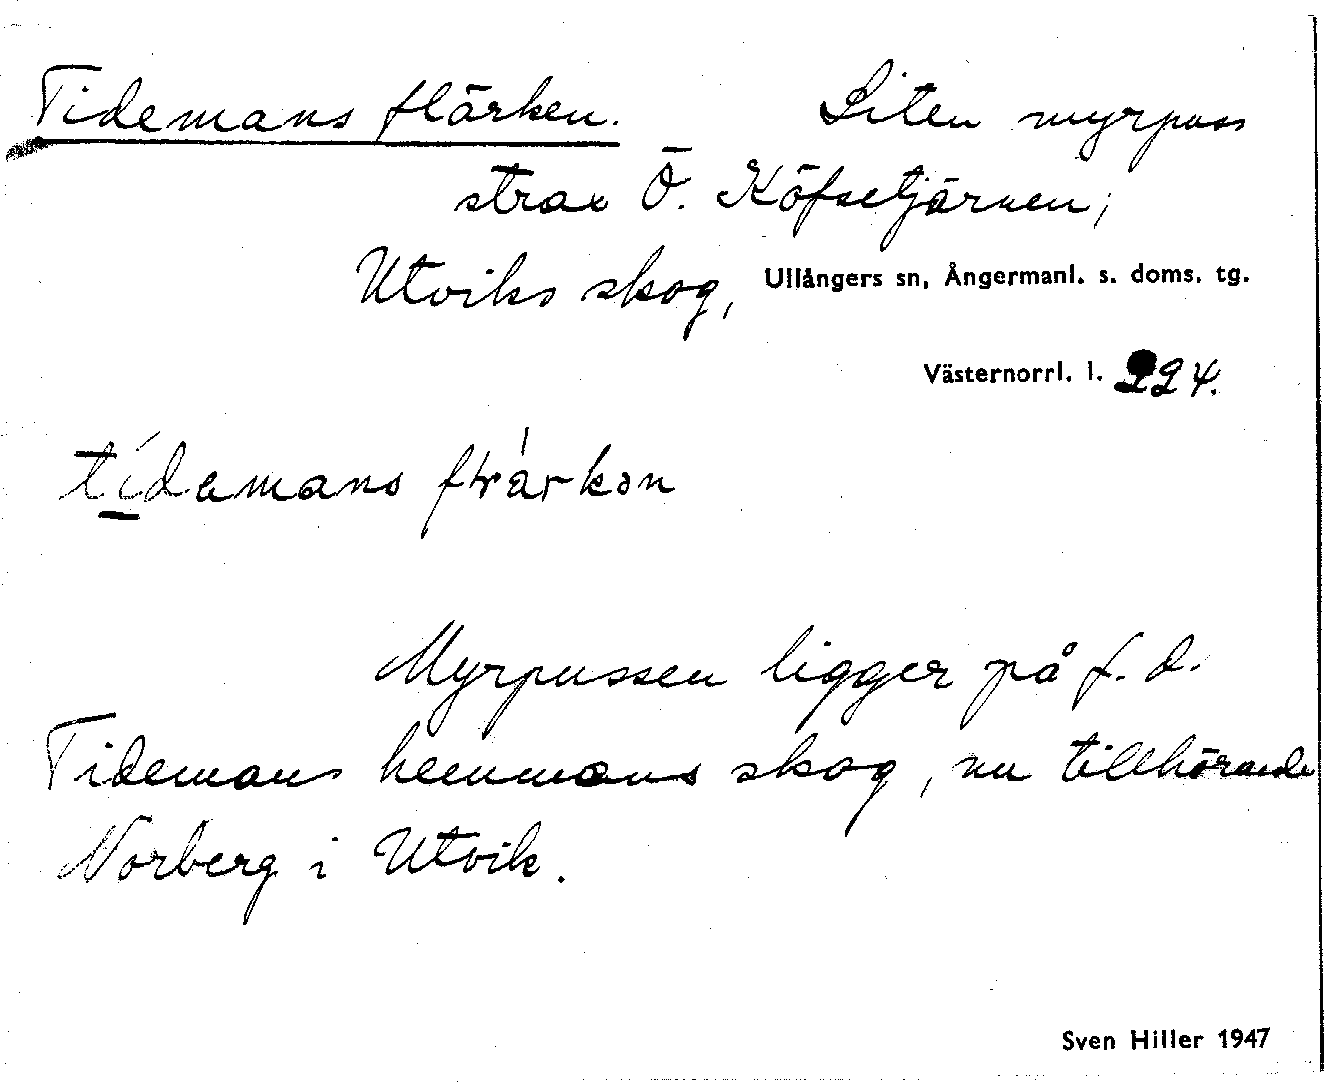 Tidemans flärken. Liten myrpuss
strax Ö. Köfsetjärnen;
Utviks skog, Ullångers sn, Ångermanl. s. doms. tg.
Västernorrl. l. 224.
tídamans flrárkən
Myrpussen ligger på f. d.
Tidemans hemmans skog, nu tillhörande
Norberg i Utvik.
Sven Hiller 1947